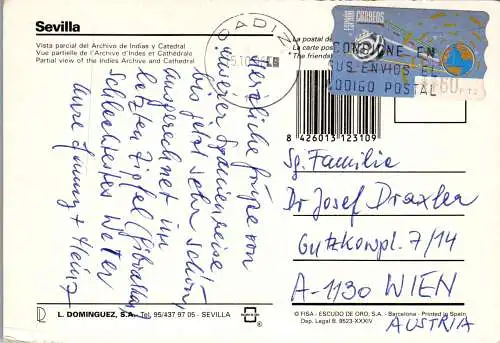 Sevilla
Vista parcial del Archivo de Indias y Catedral
Vue partielle de l'Archive d'Indes et Cathédrale
Partial view of the Indies Archive and Cathedral
Herzliche Grüße von
unserer Spanienreise
bis jetzt sehr schön
ausgerechnet im
letzten Zipfel (Gibraltar)
schlechtestes Wetter
Eure + Heinz
L. DOMINGUEZ, S.A. - Tel. 95/437 97 05 - SEVILLA
®
CADIZ
La postal de
La carte pos
The friends
ESPAÑA CORREOS
CONSIGNE EN
SUS ENVIOS EL
CODIGO POSTAL
60 PTS
8 426013 123109
Sg. Familie
Dr Josef Draxler
Gutzkowpl. 7/14
A-1130 WIEN
AUSTRIA
© FISA - ESCUDO DE ORO, S.A. - Barcelona - Printed in Spain
Dep. Legal B. 8523-XXXIV